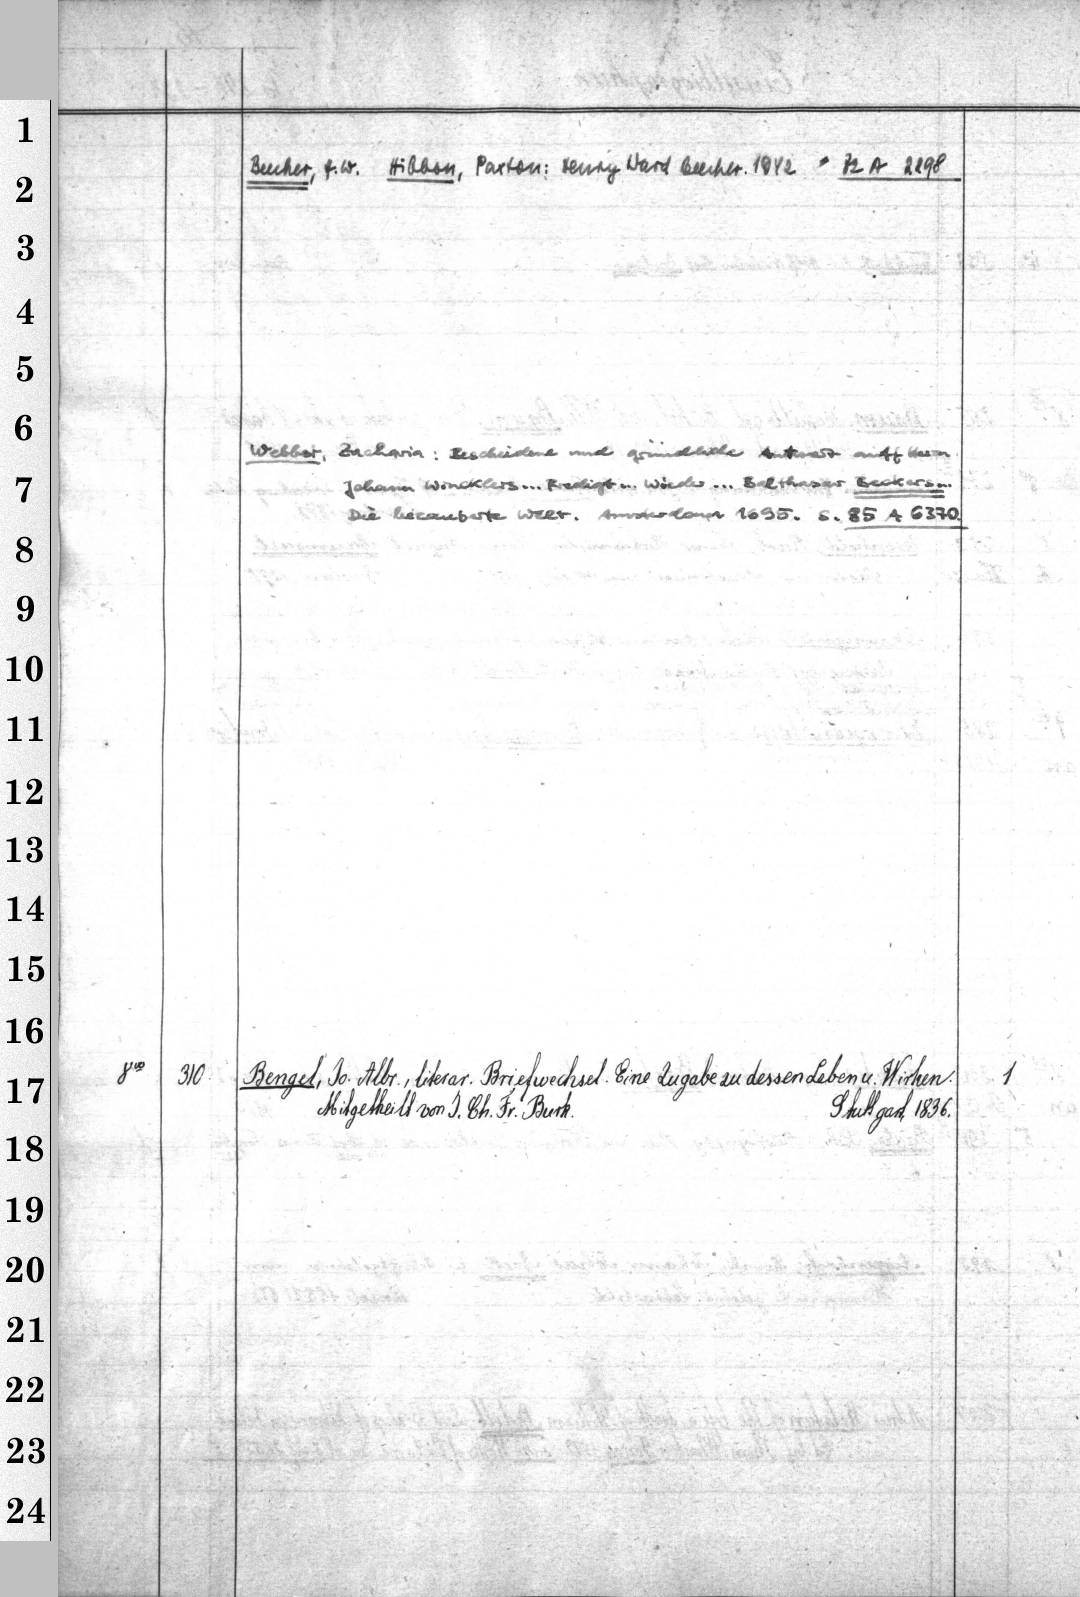 Beecher, H.W. Hibben, Paxton: Henry Ward Beecher. 1942 * 72 A 2298
Webber, Zacharia: Bescheidene und gründliche Antwort auff Herrn
Johann Wincklers... Predigt... Wieder... Balthasar Beckers...
Die bezauberte Welt. Amsterdam 1695. s. 85 A 6370.
8vo 310 Bengel, Jo. Albr., literar. Briefwechsel. Eine Zugabe zu dessen Leben u. Wirken. 1
Mitgetheilt von J. Ch. Fr. Burk. Stuttgard, 1836.
1
2
3
4
5
6
7
8
9
10
11
12
13
14
15
16
17
18
19
20
21
22
23
24